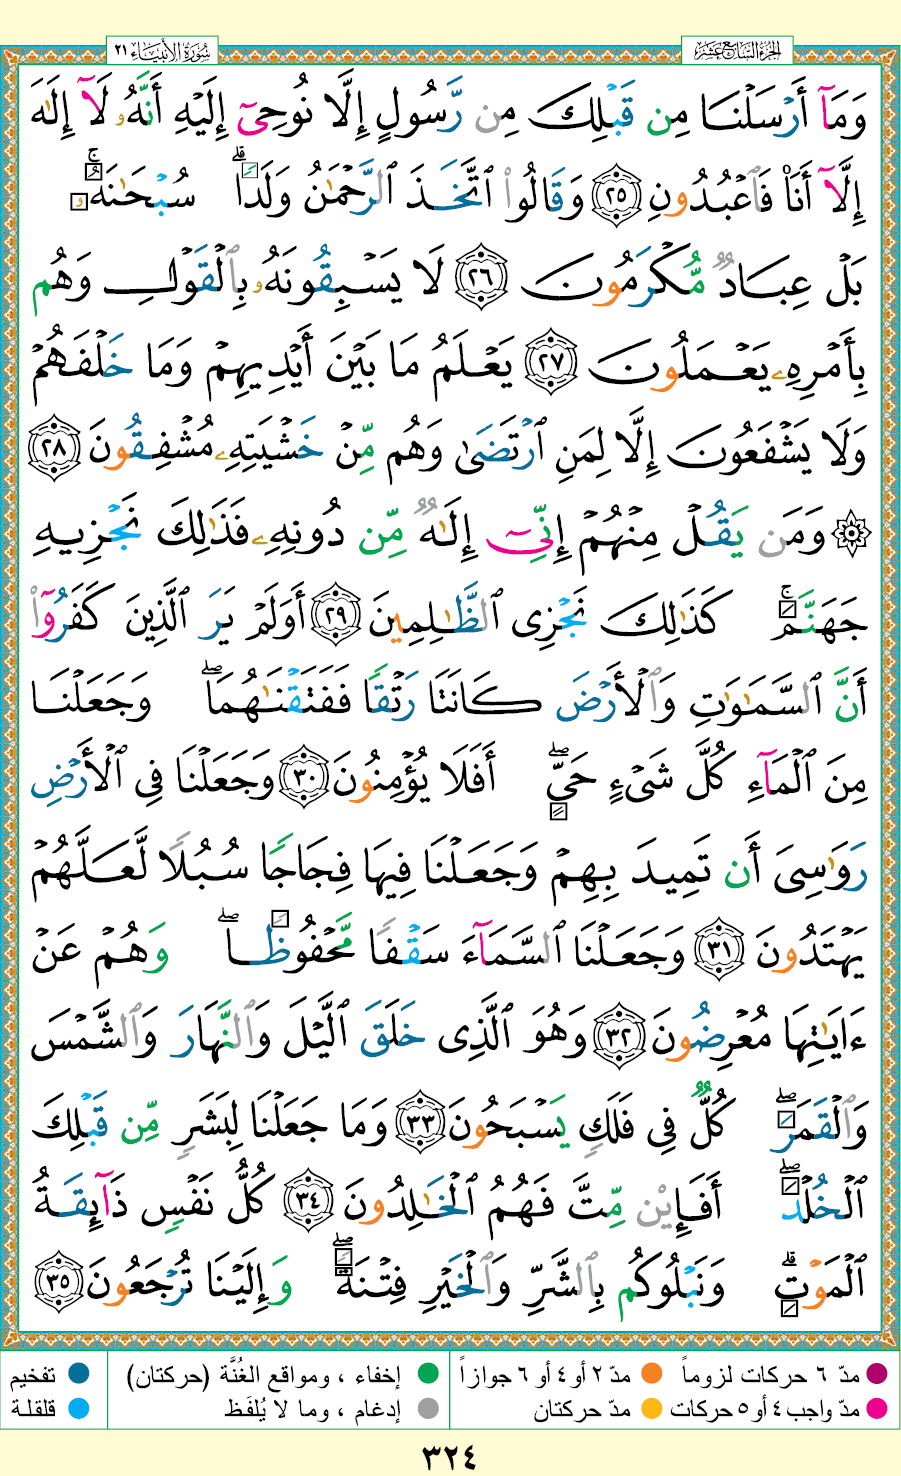 سُورَةُ الأَنبِيَاءِ ٢١
الجُزْءُ السَّابِعَ عَشَرَ
وَمَآ أَرْسَلْنَا مِن قَبْلِكَ مِن رَّسُولٍ إِلَّا نُوحِىٓ إِلَيْهِ أَنَّهُۥ لَآ إِلَٰهَ
إِلَّآ أَنَا۠ فَٱعْبُدُونِ ٢٥ وَقَالُوا۟ ٱتَّخَذَ ٱلرَّحْمَٰنُ وَلَدًا ۗ سُبْحَٰنَهُۥ ۚ
بَلْ عِبَادٌ مُّكْرَمُونَ ٢٦ لَا يَسْبِقُونَهُۥ بِٱلْقَوْلِ وَهُم
بِأَمْرِهِۦ يَعْمَلُونَ ٢٧ يَعْلَمُ مَا بَيْنَ أَيْدِيهِمْ وَمَا خَلْفَهُمْ
وَلَا يَشْفَعُونَ إِلَّا لِمَنِ ٱرْتَضَىٰ وَهُم مِّنْ خَشْيَتِهِۦ مُشْفِقُونَ ٢٨
۞ وَمَن يَقُلْ مِنْهُمْ إِنِّىٓ إِلَٰهٌ مِّن دُونِهِۦ فَذَٰلِكَ نَجْزِيهِ
جَهَنَّمَ ۚ كَذَٰلِكَ نَجْزِى ٱلظَّٰلِمِينَ ٢٩ أَوَلَمْ يَرَ ٱلَّذِينَ كَفَرُوٓا۟
أَنَّ ٱلسَّمَٰوَٰتِ وَٱلْأَرْضَ كَانَتَا رَتْقًا فَفَتَقْنَٰهُمَا ۖ وَجَعَلْنَا
مِنَ ٱلْمَآءِ كُلَّ شَىْءٍ حَىٍّ ۖ أَفَلَا يُؤْمِنُونَ ٣٠ وَجَعَلْنَا فِى ٱلْأَرْضِ
رَوَٰسِىَ أَن تَمِيدَ بِهِمْ وَجَعَلْنَا فِيهَا فِجَاجًا سُبُلًا لَّعَلَّهُمْ
يَهْتَدُونَ ٣١ وَجَعَلْنَا ٱلسَّمَآءَ سَقْفًا مَّحْفُوظًا ۖ وَهُمْ عَنْ
ءَايَٰتِهَا مُعْرِضُونَ ٣٢ وَهُوَ ٱلَّذِى خَلَقَ ٱلَّيْلَ وَٱلنَّهَارَ وَٱلشَّمْسَ
وَٱلْقَمَرَ ۖ كُلٌّ فِى فَلَكٍ يَسْبَحُونَ ٣٣ وَمَا جَعَلْنَا لِبَشَرٍ مِّن قَبْلِكَ
ٱلْخُلْدَ ۖ أَفَإِي۟ن مِّتَّ فَهُمُ ٱلْخَٰلِدُونَ ٣٤ كُلُّ نَفْسٍ ذَآئِقَةُ
ٱلْمَوْتِ ۗ وَنَبْلُوكُم بِٱلشَّرِّ وَٱلْخَيْرِ فِتْنَةً ۖ وَإِلَيْنَا تُرْجَعُونَ ٣٥
مدّ ٦ حركات لزوماً مدّ ٢ أو ٤ أو ٦ جوازاً إخفاء ، ومواقع الغُنَّة (حركتان) تفخيم
مدّ واجب ٤ أو ٥ حركات مدّ حركتان إدغام ، وما لا يُلفَظ قلقلة
٣٢٤